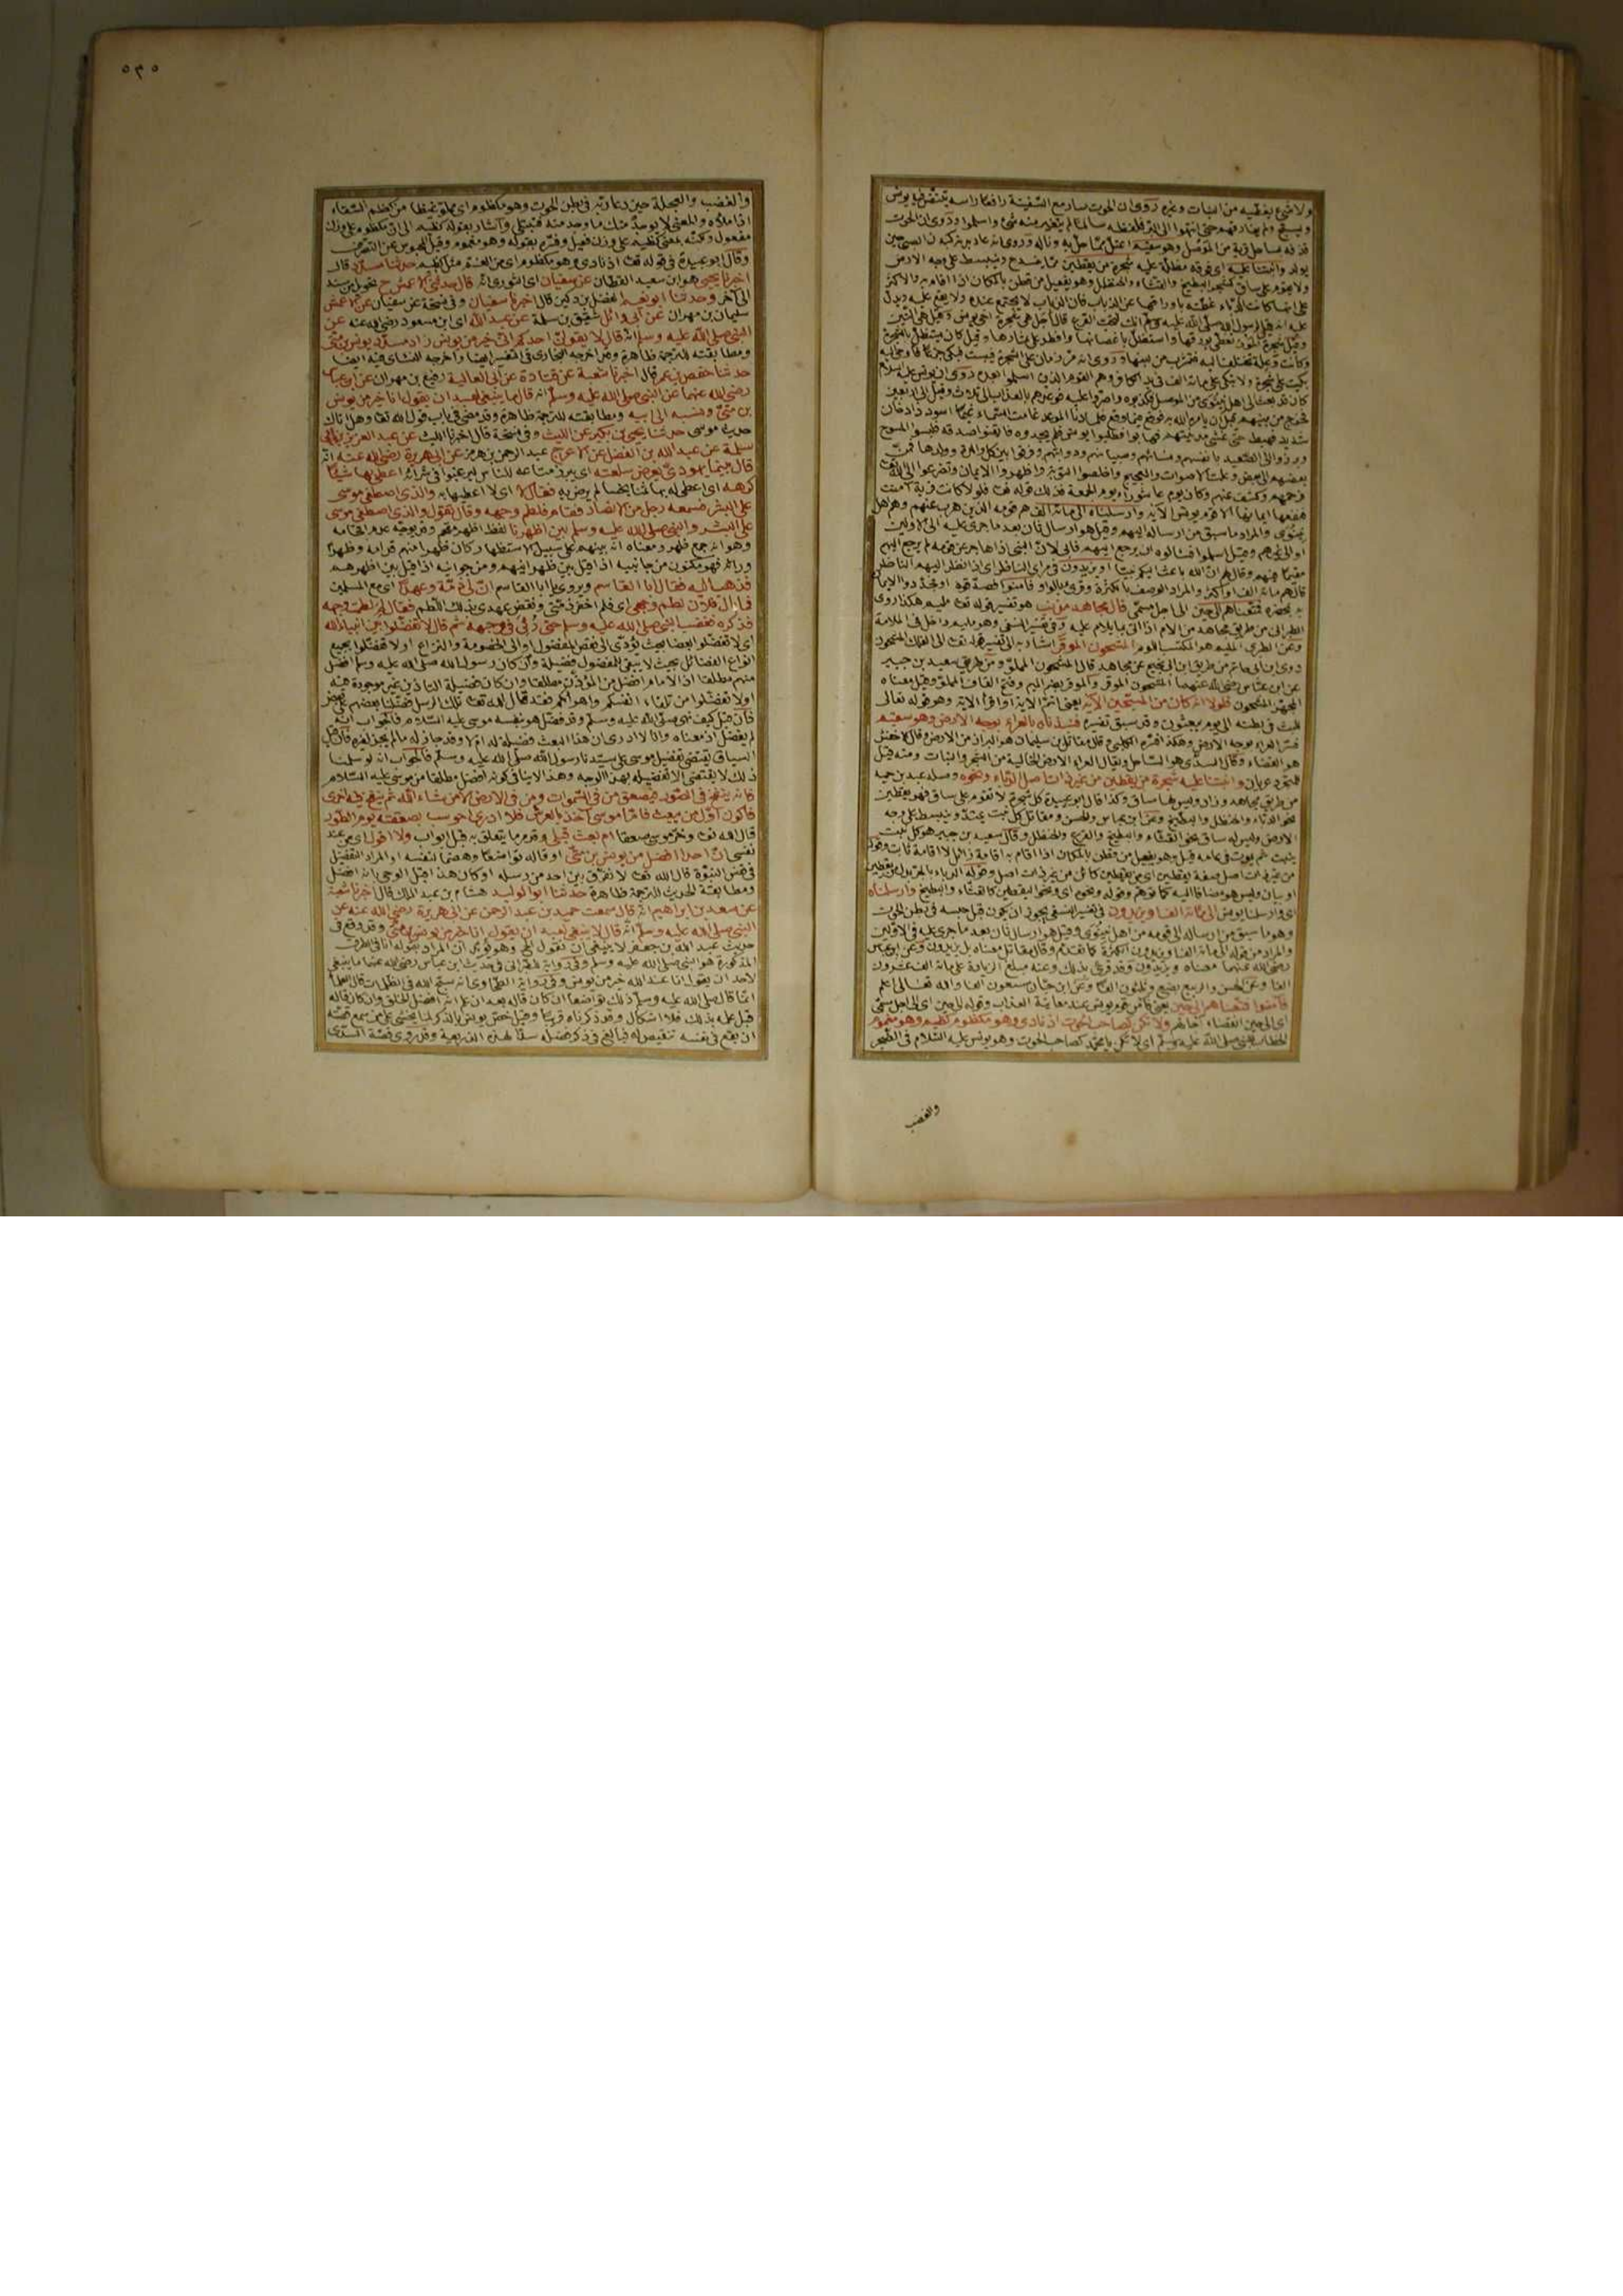 ولا شئ يغطيه من النبات وغيره روى ان الحوت سار مع السفينة رافعا راسه يتنفس فيه يونس
ويسبح ولم يفارقهم حتى انتهوا الى البر فلفظه سالما لم يتغير منه شئ واسلموا وروى ان الحوت
قذفه بساحل قرية من الموصل وهو سقيم اعتل مما حل به
يولد وانبتنا عليه اى فوقه مظلة عليه شجرة من يقطين مما ينسدح وينبسط على وجه الارض
ولا يقوم على ساق كشجر البطيخ والقثاء والحنظل وهو يفعيل من قطن بالمكان اذا اقام به والاكثر
على انها كانت الدباء غطته باوراقها عن الذباب فان الذباب لا يجتمع عنده
عليه انه قيل لرسول الله صلى الله عليه وسلم انك لتحب القرع قال اجل هى شجرة اخى يونس وقيل هى التين
وقيل شجرة الموز تغطى بورقها واستظل باغصانها وافطر على ثمارها وقيل كان يستظل بالشجرة
وكانت وعلة تختلف اليه فيشرب من لبنها وروى انه مر زمان على الشجرة فيبست فبكى جزعا فاوحى اليه
بكيت على شجرة ولا تبكى على مائة الف فى يد الكافر وهم القوم الذين اسلموا
كان قد بعث الى اهل نينوى من الموصل فكذبوه واصروا عليه فوعدهم بالعذاب الى ثلاث وقيل الى اربعين
فخرج من بينهم قبل ان يامره الله به فوقع فيما وقع فلما دنا الموعد غامت السماء غيما اسود ذا دخان
شديد فهبط حتى غشى مدينتهم فهابوا فطلبوا يونس فلم يجدوه فايقنوا صدقه فلبسوا المسوح
وبرزوا الى الصعيد بانفسهم ونسائهم وصبيانهم ودوابهم وفرقوا بين كل والدة وولدها فحن
بعضهم الى بعض وعلت الاصوات والعجيج واخلصوا التوبة واظهروا الايمان وتضرعوا الى الله تعالى
فرحمهم وكشف عنهم وكان يوم عاشوراء يوم الجمعة فذلك قوله تعا فلولا كانت قرية آمنت
فنفعها ايمانها الا قوم يونس الآية وارسلناه الى مائة الف هم قومه الذين هرب عنهم وهم اهل
نينوى والمراد ما سبق من ارساله اليهم وقيل هو ارسال ثان بعد ما جرى عليه الى الاولين
او الى غيرهم وقيل اسلموا فسالوه ان يرجع اليهم فابى لان النبى اذا هاجر عن قومه لم يرجع اليهم
مقيما فيهم وقال لهم ان الله باعث اليكم نبيا او يزيدون فى مراى الناظر اى اذا نظر اليهم الناظر
قال هم مائة الف او اكثر والمراد الوصف بالكثرة وقرئ بالواو فآمنوا فصدقوه او فجددوا الايمان
به بمحضره فمتعناهم الى حين الى اجل مسمى قال مجاهد مذنب هو تفسير قوله تعا مليم هكذا روى
الطبرانى من طريق مجاهد من الام اذا اتى بما يلام عليه
وعن الطبرى المليم هو المكتسب اللوم المشحون الموقر اشار به الى تفسير قوله تعا الى الفلك المشحون
روى ابن ابى حاتم من طريق ابن ابى نجيح عن مجاهد قال المشحون المملو ومن طريق سعيد بن جبير
عن ابن عباس رضى الله عنهما المشحون الموقر والموقر بضم الميم وفتح القاف المملو وقيل معناه
المجهز المشحون فلولا انه كان من المسبحين الآية يعنى اتم الآية او اقرا الآية وهو قوله تعالى
للبث فى بطنه الى يوم يبعثون وقد سبق تفسيره فنبذناه بالعراء بوجه الارض وهو سقيم
فسر العراء بوجه الارض وهكذا فسره الكلبى وقال مقاتل بن سليمان هو البراز من الارض وقال الاخفش
هو الفضاء وقال السدى هو الساحل ويقال العراء الارض الخالية من الشجر والنبات ومنه قيل
للمتجرد عريان وانبتنا عليه شجرة من يقطين من غير ذات اصل الدباء ونحوه وصله عبد بن حميد
من طريق مجاهد وزاد وليس لها ساق وكذا قال ابو عبيدة كل شجرة لا تقوم على ساق فهو يقطين
نحو الدباء والحنظل والبطيخ وعن ابن عباس والحسن ومقاتل كل نبت يمتد وينبسط على وجه
الارض وليس له ساق نحو القثاء والبطيخ والقرع والحنظل وقال سعيد بن جبير هو كل نبت
ينبت ثم يموت فى عامه قيل وهو يفعيل من قطن بالمكان اذا اقام به اقامة زائل لا اقامة ثابت وقوله
من غير ذات اصل صفة يقطين اى من يقطين كائن من غير ذات اصل وقوله الدباء بالجر بدل من يقطين
او بيان وليس هو مضافا اليه كما توهم وقوله ونحوه اى ونحو اليقطين كالقثاء والبطيخ وارسلناه
اى وارسلنا يونس الى مائة الف او يزيدون فى تفسير النسفى يجوز ان يكون قبل حبسه فى بطن الحوت
وهو ما سبق من ارساله الى قومه من اهل نينوى وقيل هو ارسال ثان بعد ما جرى عليه فى الاولين
والمراد من قوله الى مائة الف او يزيدون الكثرة كما تقدم وقال مقاتل معناه بل يزيدون وعن ابن عباس
رضى الله عنهما معناه ويزيدون وقد قرئ بذلك وعنه مبلغ الزيادة على مائة الف عشرون
الفا وعن الحسن والربيع بضع وثلثون الفا وعن ابن حبان سبعون الفا والله تعالى اعلم
فآمنوا فمتعناهم الى حين يعنى فآمن قوم يونس عند معاينة العذاب وقوله الى حين اى الى اجل مسمى
اى الى حين انقضاء آجالهم ولا تكن كصاحب الحوت اذ نادى وهو مكظوم كظيم وهو مغموم
الخطاب للنبى صلى الله عليه وسلم اى لا تكن يا محمد كصاحب الحوت وهو يونس عليه السلام فى الضجر
والغضب
٥٣٥
والغضب والعجلة حين دعا ربه فى بطن الحوت وهو مكظوم اى مملو غيظا من كظم السقاء
اذا ملأه والمعنى لا يوجد منك ما وجد منه فتبتلى واشار بقوله كظيم الى ان مكظوم على وزن
مفعول ولكنه بمعنى كظيم على وزن فعيل وفسره بقوله وهو مغموم وقيل المحبوس عن التصرف
وقال ابو عبيدة فى قوله تعا اذ نادى وهو مكظوم اى من الغم مثل كظيم حدثنا مسدد قال
اخبرنا يحيى هو ابن سعيد القطان عن سفيان اى الثورى انه قال حدثنى الاعمش ح تحويل من سند
الى آخر وحدثنا ابو نعيم الفضل بن دكين قال اخبرنا سفيان وفى نسخة عن سفيان عن الاعمش
سليمان بن مهران عن ابى وائل شقيق بن سلمة عن عبد الله اى ابن مسعود رضى الله عنه عن
النبى صلى الله عليه وسلم انه قال لا يقولن احدكم انى خير من يونس زاد مسدد يونس بن متى
ومطابقته للترجمة ظاهرة وقد اخرجه البخارى فى التفسير ايضا واخرجه النسائى فيه ايضا
حدثنا حفص بن عمر قال اخبرنا شعبة عن قتادة عن ابى العالية رفيع بن مهران عن ابن عباس
رضى الله عنهما عن النبى صلى الله عليه وسلم انه قال ما ينبغى لعبد ان يقول انا خير من يونس
بن متى ونسبه الى ابيه ومطابقته للترجمة ظاهرة وقد مضى فى باب قول الله تعا وهل اتاك
حديث موسى حدثنا يحيى بن بكير عن الليث وفى نسخة قال اخبرنا الليث عن عبد العزيز بن ابى
سلمة عن عبد الله بن الفضل عن الاعرج عبد الرحمن بن هرمز عن ابى هريرة رضى الله عنه انه
قال بينما يهودى يعرض سلعته اى يبرز متاعه للناس ليرغبوا فى شرائه اعطى بها شيئا
كرهه اى اعطى له بها ثمنا بخسا لم يرض به فقال لا اى لا اعطيها به والذى اصطفى موسى
على البشر فسمعه رجل من الانصار فقام فلطم وجهه وقال تقول والذى اصطفى موسى
على البشر والنبى صلى الله عليه وسلم بين اظهرنا لفظ اظهر مقحم وقد يوجه عدم اقحامه
وهو انه جمع ظهر ومعناه انه بينهم على سبيل الاستظهار كان ظهرا منهم قدامه وظهرا
وراءه فهو مكنون من جانبيه اذا قيل بين ظهرانيهم ومن جوانبه اذا قيل بين اظهرهم
فذهب اليه فقال ابا القاسم ويروى يا ابا القاسم ان لى ذمة وعهدا اى مع المسلمين
فما بال فلان لطم وجهى اى فلم اخفر ذمتى ونقض عهدى بذلك اللطم فقال لم لطمت وجهه
فذكره فغضب النبى صلى الله عليه وسلم حتى رُئى فى وجهه ثم قال لا تفضلوا بين انبياء الله
اى لا تفضلوا بعضا بحيث يؤدى الى نقص المفضول او الى الخصومة والنزاع او لا تفضلوا بجميع
انواع الفضائل بحيث لا يبقى للمفضول فضيلة وان كان رسول الله صلى الله عليه وسلم افضل
منهم مطلقا اذ الامام افضل من المؤذن مطلقا وان كان فضيلة التاذين غير موجودة فيه
او لا تفضلوا من تلقاء انفسكم واهوائكم فقد قال الله تعا تلك الرسل فضلنا بعضهم على بعض
فان قيل كيف نهى صلى الله عليه وسلم وقد فضل هو نفسه موسى عليه السلام فالجواب انه
لم يفضل اذ معناه وانا لا ادرى ان هذا البعث فضيلة له ام لا وقد جاز له ما لم يجز لغيره فان قيل
السياق يقتضى تفضيل موسى على سيدنا رسول الله صلى الله عليه وسلم فالجواب انه لو سلمنا
ذلك لا يقتضى الا تفضيله بهذا الوجه وهذا لا ينافى كونه افضل مطلقا من موسى عليه السلام
فانه ينفخ فى الصور فيصعق من فى السموات ومن فى الارض الا من شاء الله ثم ينفخ فيه اخرى
فاكون اول من يبعث فاذا موسى آخذ بالعرش فلا ادرى احوسب بصعقته يوم الطور
قال الله تعا وخر موسى صعقا ام بعث قبلى وقد مر ما يتعلق به قبل ابواب ولا اقول اى من عند
نفسى ان احدا افضل من يونس بن متى او قاله تواضعا وهضما لنفسه او المراد التفضيل
فى نفس النبوة قال الله تعا لا نفرق بين احد من رسله او كان هذا قبل الوحى بانه افضل
ومطابقة الحديث للترجمة ظاهرة حدثنا ابو الوليد هشام بن عبد الملك قال اخبرنا شعبة
عن سعد بن ابراهيم انه قال سمعت حميد بن عبد الرحمن عن ابى هريرة رضى الله عنه عن
النبى صلى الله عليه وسلم انه قال لا ينبغى لعبد ان يقول انا خير من يونس بن متى وقد وقع فى
حديث عبد الله بن جعفر لا ينبغى لنبى ان يقول الخ وهو يؤيد ان المراد بقوله انا فى الطرق
المذكورة هو النبى صلى الله عليه وسلم وفى رواية للطبرانى فى حديث ابن عباس رضى الله عنهما ما ينبغى
لاحد ان يقول انا عند الله خير من يونس وفى رواية الطحاوى انه سبح الله فى الظلمات قال العلماء
انما قال صلى الله عليه وسلم ذلك تواضعا ان كان قاله بعد ان علم انه افضل الخلق وان كان قاله
قبل علمه بذلك فلا اشكال وقد ذكرناه قريبا وقيل خص يونس بالذكر لما يخشى على من سمع قصته
ان يقع فى نفسه تنقيص له فبالغ فى ذكر فضله سدا لهذه الذريعة وقد روى قصته السدى